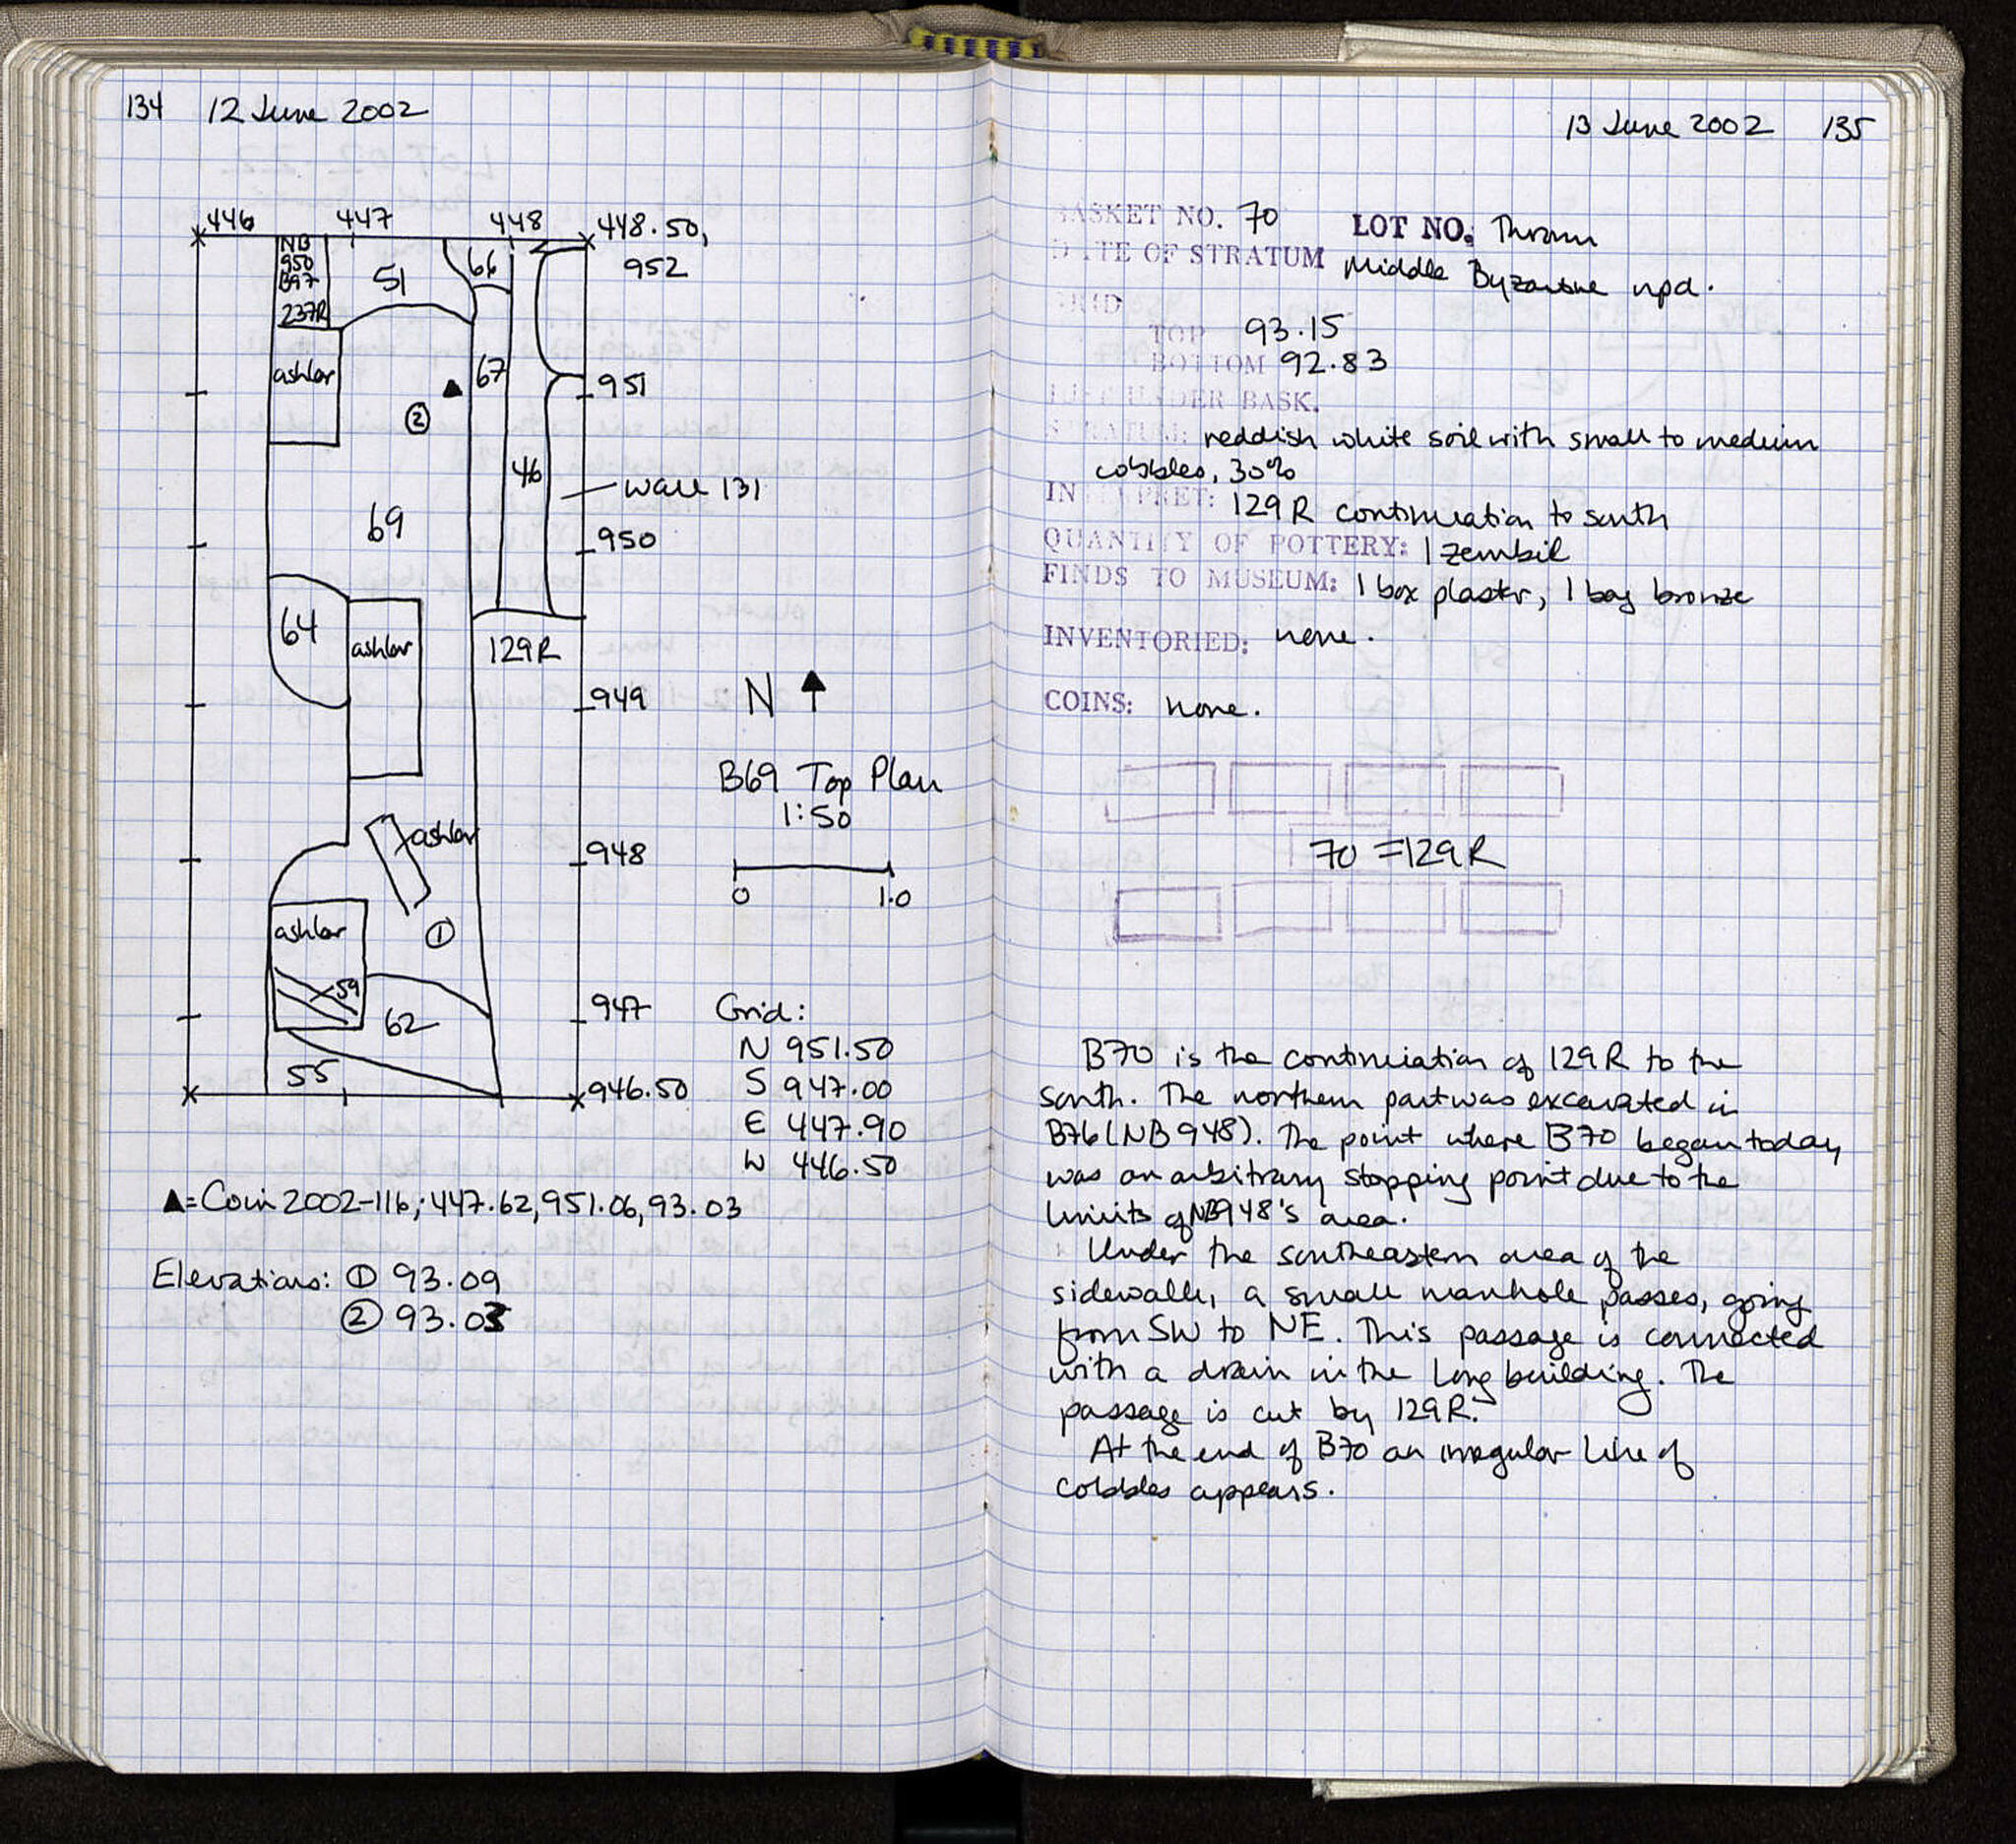 134 12 June 2002
446 447 448 448.50,
952
NB
950
B97
237R
51
66
ashlar
67
951
②
46
wall 131
69
950
64
ashlar
129R
949
N
B69 Top Plan
1:50
ashlar
948
0 1.0
ashlar
①
59
947
62
Grid:
N 951.50
55
946.50
S 947.00
E 447.90
W 446.50
▲= Coin 2002-116; 447.62, 951.06, 93.03
Elevations: ① 93.09
② 93.03
13 June 2002 135
BASKET NO. 70 LOT NO. Thrown
DATE OF STRATUM Middle Byzantine npd.
GRID
TOP 93.15
BOTTOM 92.83
UNDER BASK.
STRATUM: reddish white soil with small to medium
cobbles, 30%
INTERPRET: 129R continuation to south
QUANTITY OF POTTERY: 1 zembil
FINDS TO MUSEUM: 1 box plaster, 1 bag bronze
INVENTORIED: none.
COINS: none.
70 = 129R
B70 is the continuation of 129R to the
south. The northern part was excavated in
B76 (NB 948). The point where B70 began today
was an arbitrary stopping point due to the
limits of NB948's area.
Under the southeastern area of the
sidewalk, a small manhole passes, going
from SW to NE. This passage is connected
with a drain in the Long building. The
passage is cut by 129R.
At the end of B70 an irregular line of
cobbles appears.